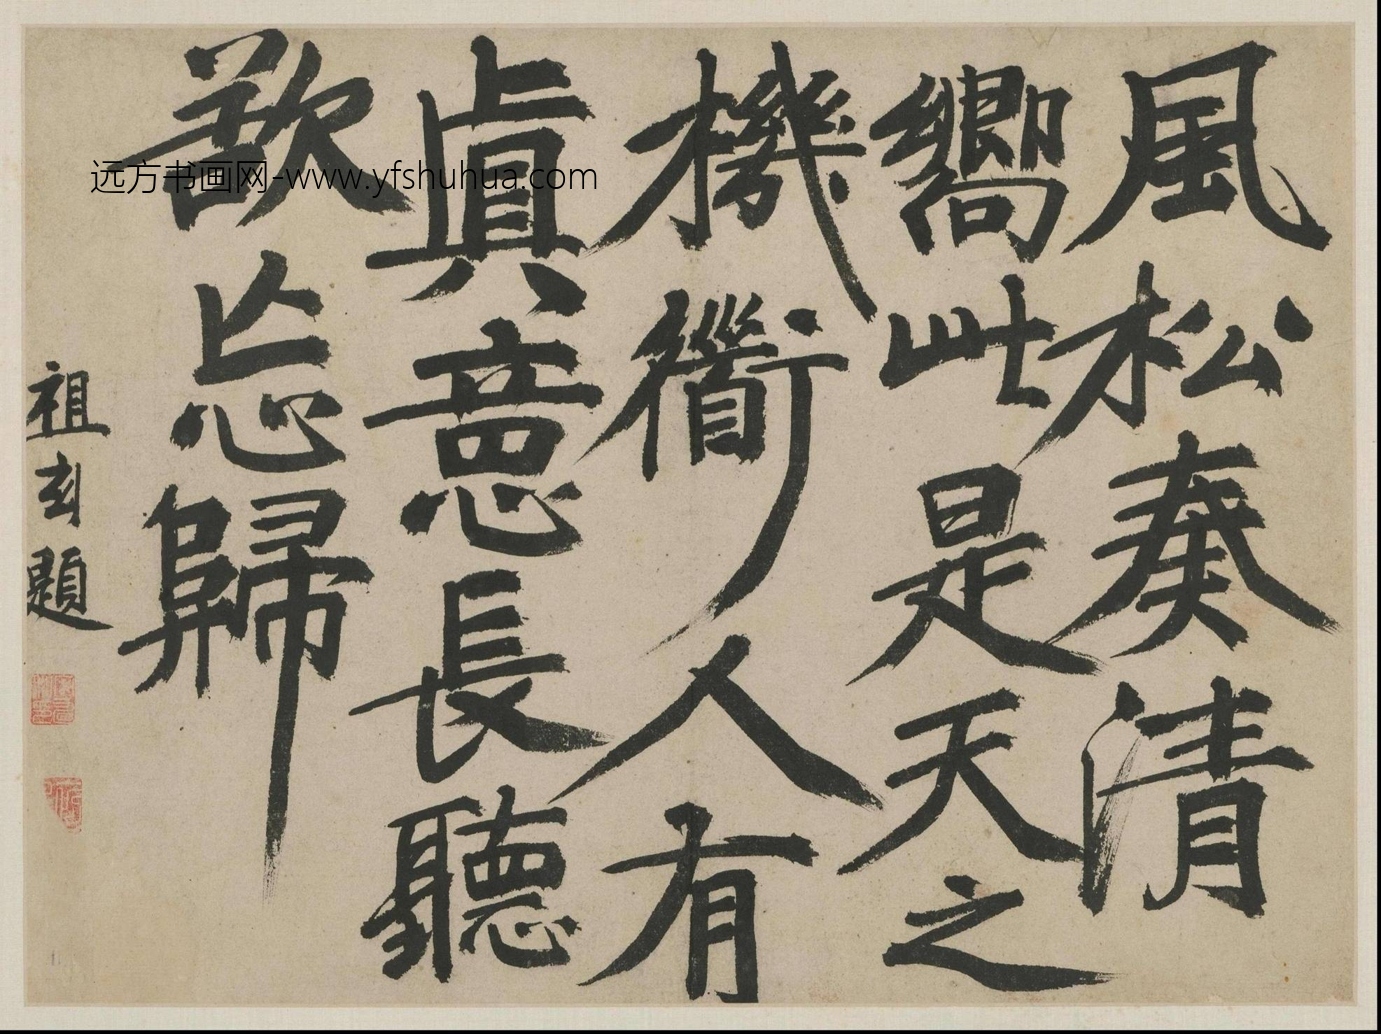 風松奏清
嚮此是天之
機衟人有
眞意長聽
欲忘歸
祖題
远方书画网-www.yfshuhua.com